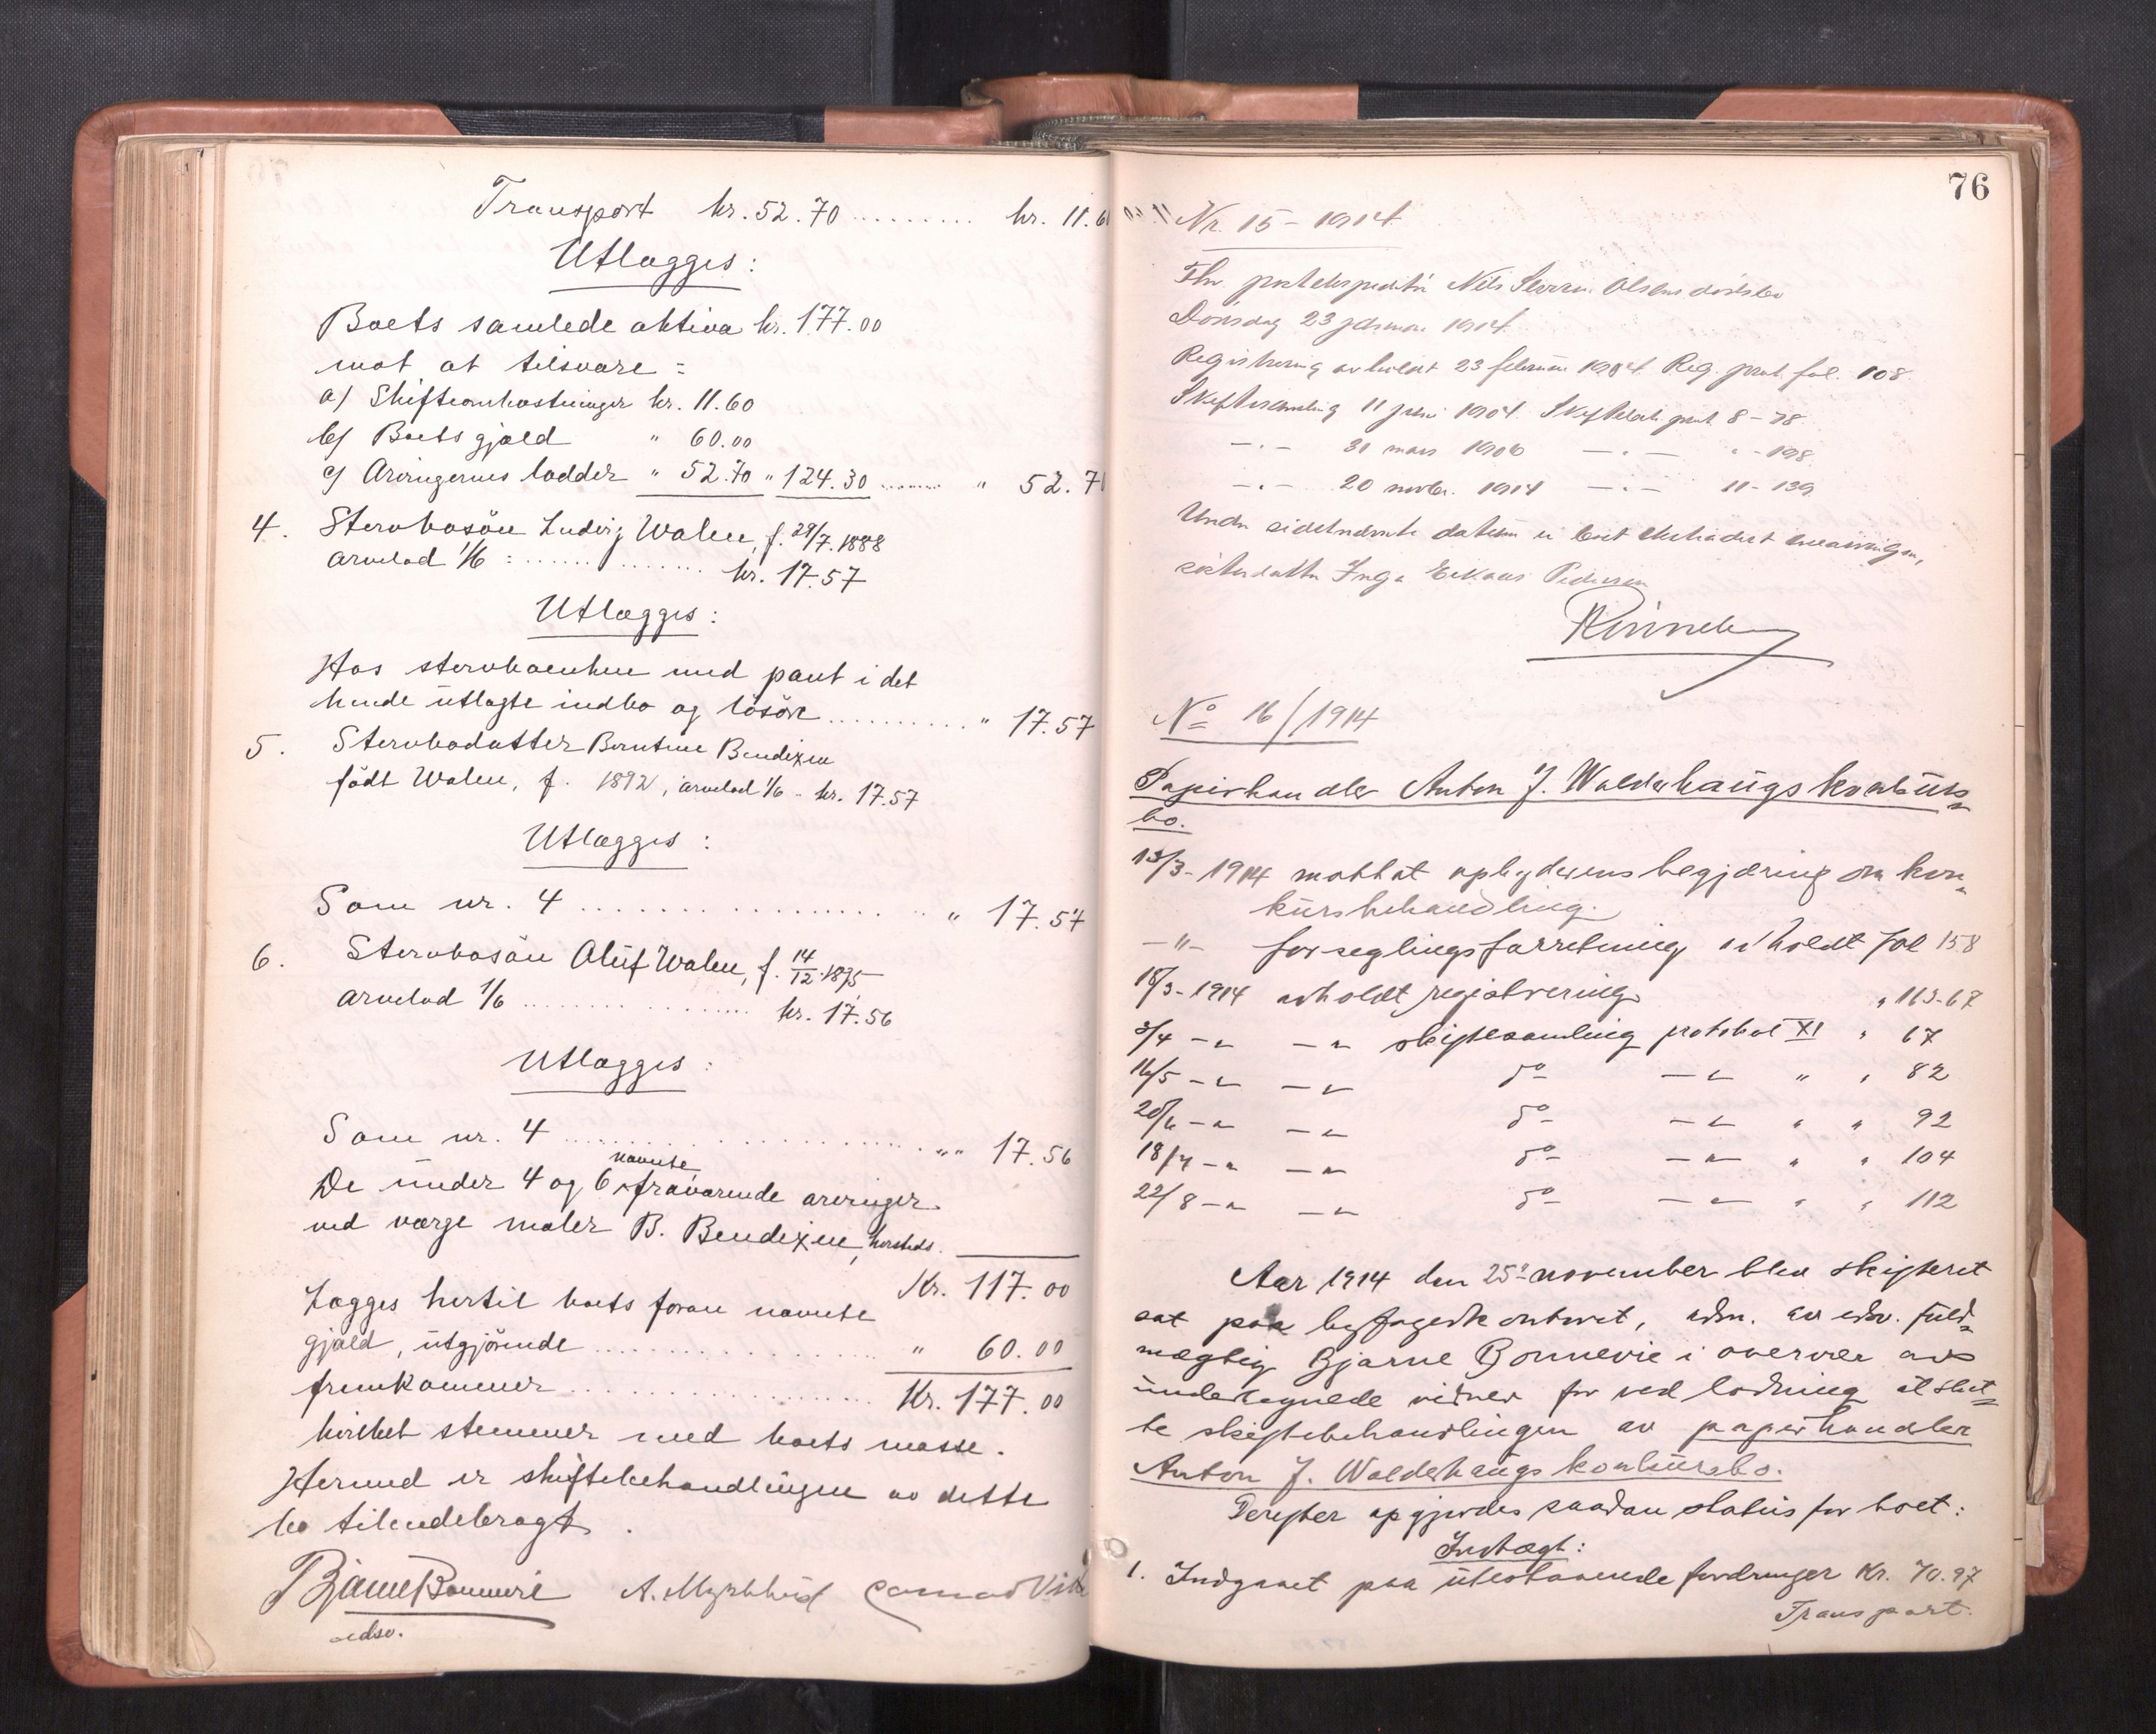 Transport kr. 52.70 ......... kr. 11.6
Utlægges:
Boets samlede aktiva kr. 177.00
mot at tilsvare:
a) Skifteomkostninger kr. 11.60
b) Boets gjæld " 60.00
c) Arvingernes lodder " 52.70 " 124.30 ....... " 52.7
4. Stervbosön Ludvig Walen, f. 29/7.1888
arvelod 1/6 : .................. kr. 17.57
Utlægges:
Hos stervboenken med pant i det
hende utlagte indbo og lösöre .......... " 17.57
5. Stervbodatter Berntine Bendixen
födt Walen, f. 1892, arvelod 1/6 - kr. 17.57
Utlægges:
Som nr. 4 ..................... " 17.57
6. Stervbosön Oluf Walen, f. 14/12.1895
arvelod 1/6 .................. kr. 17.56
Utlægges:
Som nr. 4 ..................... " " 17.56
De under 4 og 6 nævnte fraværende arvinger
ved værge maler B. Bendixen, hersteds.
Kr. 117.00
Lægges hertil boets foran nævnte
gjæld, utgjörende ................ " 60.00
fremkommer .................. Kr. 177.00
hvilket stemmer med boets masse.
Hermed er skiftebehandlingen av dette
bo tilendebragt.
Bjarne Bonnevie A. Myrhled
edsv.
76
Nr. 15 - 1914
Fhv. postekspeditör Nils Olsens dödsbo
Dödsdag 23 januar 1904.
Registrering avholdt 23 februar 1904 Reg. prot. fol. 108.
Skiftesamling 11 juni 1904. Skifteforh. prot. 8 - 78
— " — 31 mars 1906 — " — " - 198
— " — 20 novbr. 1914 — " — 11 - 139
Under sidstnævnte datum er boet ekstradert enearvingen,
søsterdatter Inga Pedersen
No 16/1914
Papirhandler Anton J. Walderhaugs konkurs-
bo.
13/3 - 1914 mottat opbyderens begjæring om kon-
kursbehandling.
— " — forseglingsforretning avholdt fol 158
18/3 - 1914 avholdt registrering " 113-67
3/4 - " - " skiftesamling protokol XI " 67
16/5 - " - " do - " " " 82
20/6 - " - " do - " " " 92
18/7 - " - " do - " " " 104
22/8 - " - " do - " " " 112
Aar 1914 den 25de november blev skifteret
sat paa byfogedkontoret, adm. av edsv. fuld-
mægtig Bjarne Bonnevie i overvær av
undertegnede vidner for ved lodning at slut-
te skiftebehandlingen av papirhandler
Anton J. Walderhaugs konkursbo.
Derefter opgjordes saadan status for boet:
Indtægt:
1. Indgaaet paa utestaaende fordringer Kr. 70.97
Transport.